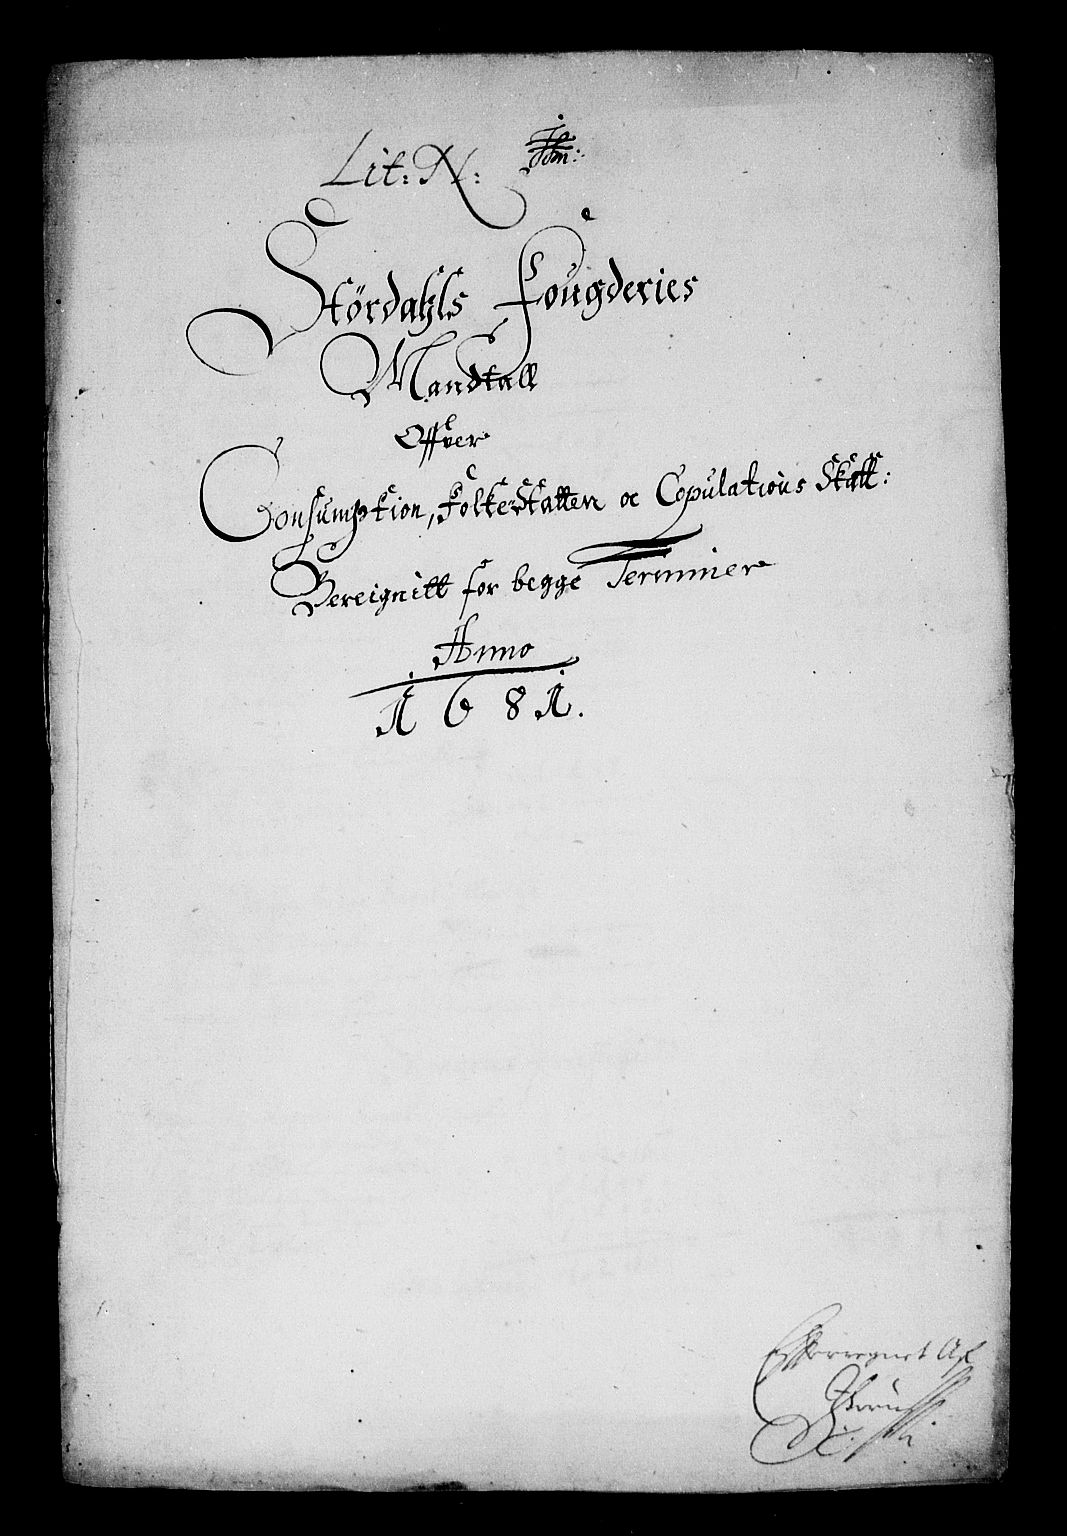 Lit: N:
Stördahls Fougderies
Mandtall
Offver
Consumption, Folke-Skatten oc Copulations Skatt:
Bereignitt for begge Terminer
Anno
1681.
Efferregnet Af